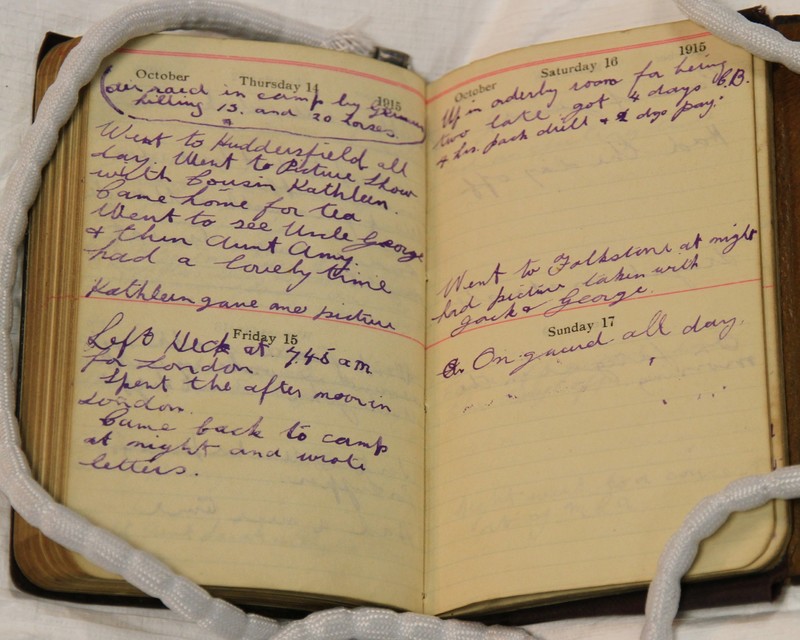 October Thursday 14 1915
raid in camp by German
killing 15. and 20 horses.
Went to Huddersfield all
day. Went to Picture Show
with Cousin Kathleen.
Came home for tea
Went to see Uncle George
& then Aunt Amy.
had a lovely time
Kathleen gave me picture
Friday 15
Left Heck at 7.45 am
for London
Spent the after noon in
London.
Came back to camp
at night and wrote
letters.
October Saturday 16 1915
Up in orderly room for being
two late, got 4 days C.B.
4 hrs pack drill & dys pay.
Went to Folkstone at night
had picture taken with
Jack & George.
Sunday 17
On guard all day.